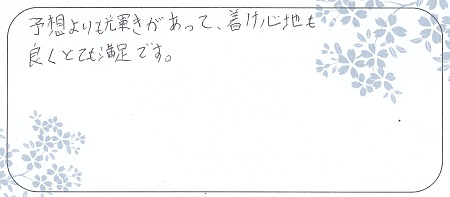 予想よりも輝きがあって、着け心地も
良くとても満足です。